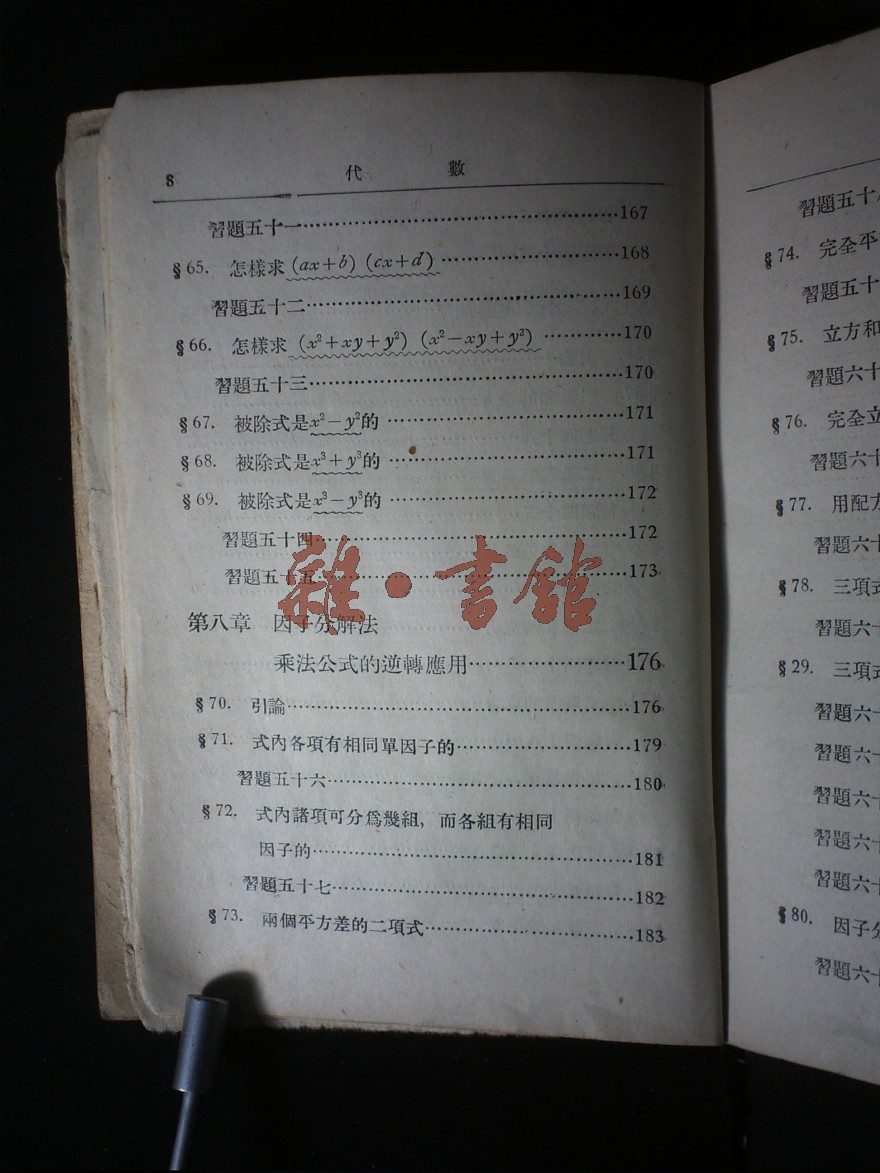 8 代 數
習題五十一……167
§65. 怎樣求 (ax+b) (cx+d)……168
習題五十二……169
§66. 怎樣求 (x²+xy+y²) (x²−xy+y²)……170
習題五十三……170
§67. 被除式是x²−y²的……171
§68. 被除式是x³+y³的……171
§69. 被除式是x³−y³的……172
習題五十四……172
習題五十五……173
雜·書館
第八章 因子分解法
乘法公式的逆轉應用……176
§70. 引論……176
§71. 式內各項有相同單因子的……179
習題五十六……180
§72. 式內諸項可分爲幾組，而各組有相同
因子的……181
習題五十七……182
§73. 兩個平方差的二項式……183
習題五十
§74. 完全平
習題五十
§75. 立方和
習題六十
§76. 完全立
習題六十
§77. 用配方
習題六十
§78. 三項式
習題六十
§29. 三項式
習題六十
習題六十
習題六十
習題六十
習題六十
§80. 因子分
習題六十